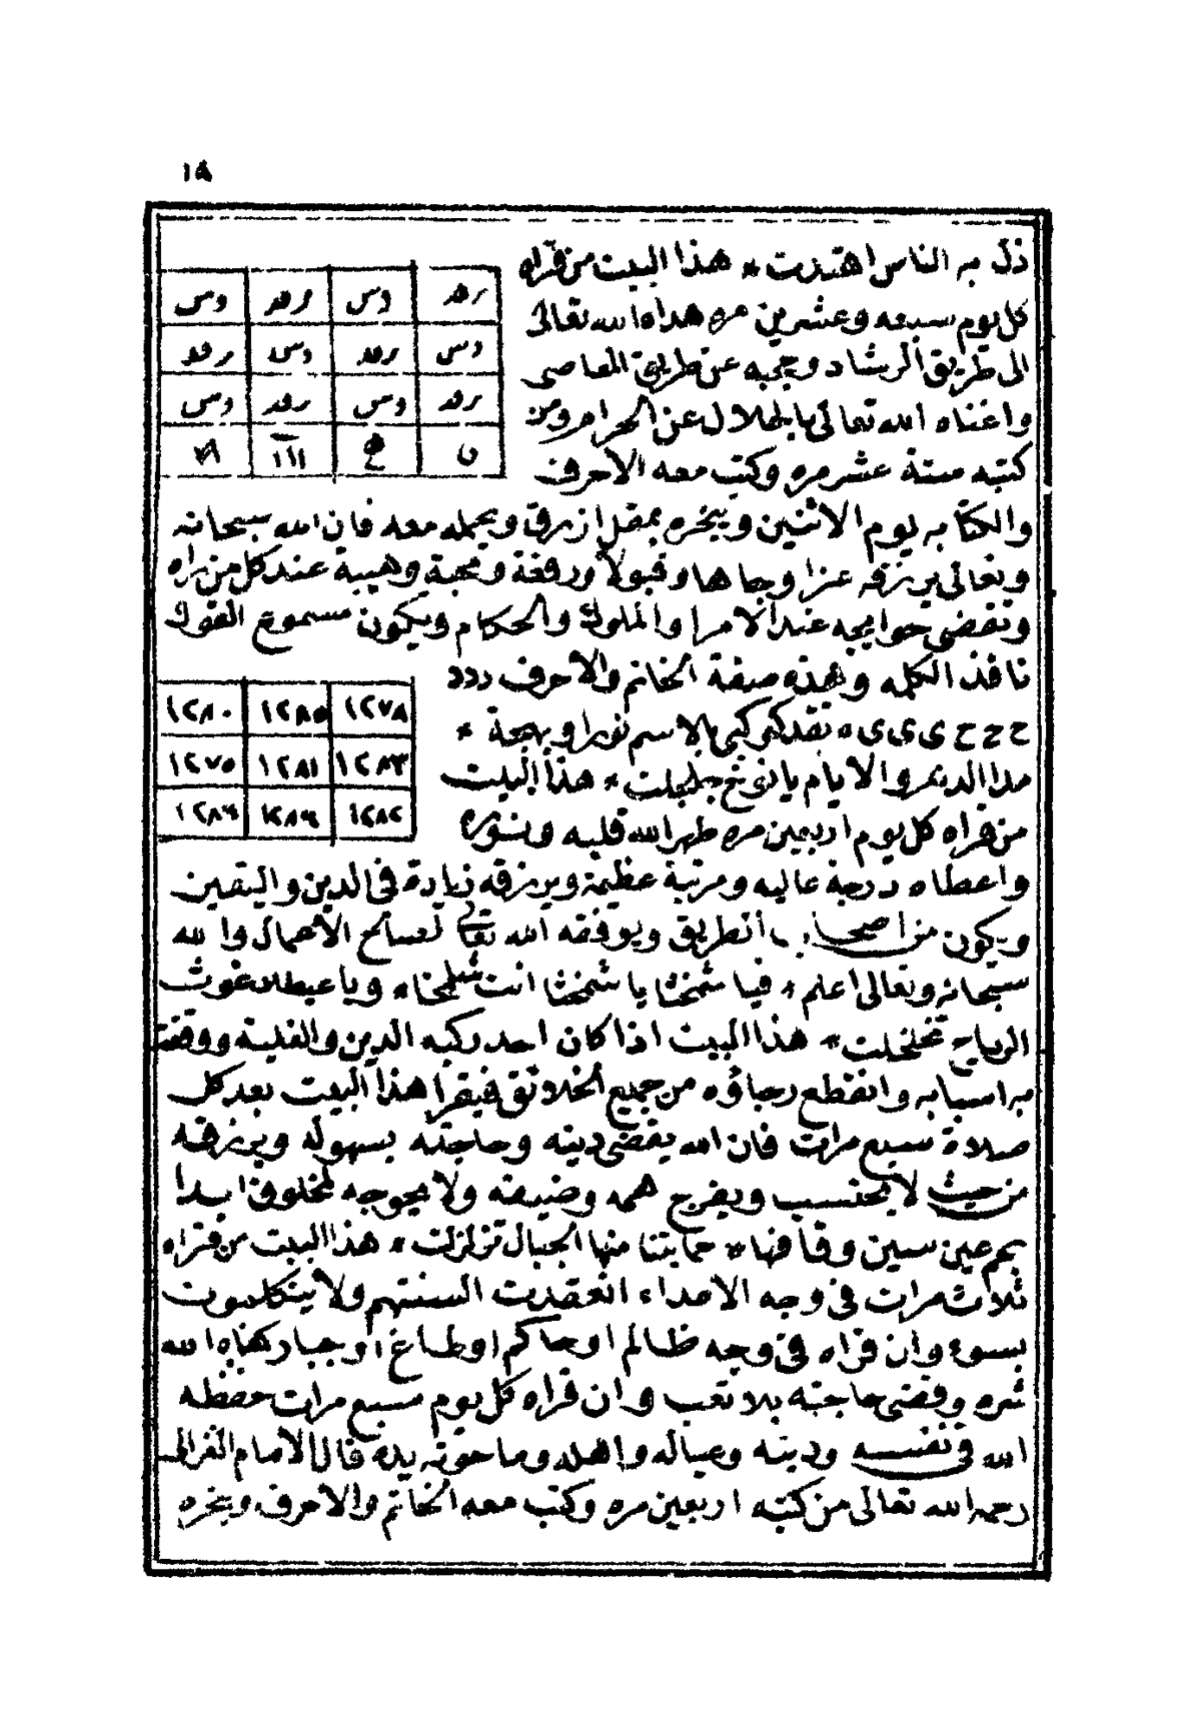 ١٨
ذل به الناس اهتدت * هذا البيت من قراه
كل يوم سبعه وعشرين مره هداه الله تعالى
الى طريق الرشاد وحجبه عن طريق المعاصى
واغناه الله تعالى بالحلال عن الحرام ومن
كتبه ستة عشر مره وكتب معه الاحرف
والكتابه يوم الاثنين ويبخره بمقل ازرق ويحمله معه فان الله سبحانه
وتعالى يرزقه عزا وجاها وقبولا ورفعة ومحبة وهيبة عند كل من راه
وتقضى حوايجه عند الامرا والملوك والحكام ويكون مسموع القول
نافذ الكلمه وهذه صفة الخاتم والاحرف ددد
ح ح ح ى ى ى ه تقد كوكبى بالاسم نورا وبهجة *
مدا الدهر والايام يا نور جلجلت * هذا البيت
من قراه كل يوم اربعين مره طهر الله قلبه ونوره
واعطاه درجة عاليه ومرتبة عظيمة ويرزقه زيادة فى الدين واليقين
ويكون من اصحاب الطريق ويوفقه الله تعالى لصالح الاعمال والله
سبحانه وتعالى اعلم * فيا شمخثا يا شمخثا انت شلمخا * ويا عيطلا غوث
الرياح تخلخلت * هذا البيت اذا كان احد ركبه الدين والغلبة ووقفت
به اسبابه وانقطع رجاؤه من جميع الخلائق فيقرا هذا البيت بعد كل
صلاة سبع مرات فان الله يقضى دينه وحاجته بسهوله ويرزقه
من حيث لا يحتسب ويفرج همه وضيقه ولا يحوجه لمخلوق ابدا
بحم عين سين وقافها * حمايتنا منها الجبال تزلزلت * هذا البيت من قراه
ثلاث مرات فى وجه الاعداء انعقدت السنتهم ولا يتكلموت
بسوء وان قراه فى وجه ظالم او حاكم او طاغ او جبار كفاه الله
شره وقضى حاجته بلا تعب وان قراه كل يوم سبع مرات حفظه
الله فى نفسه ودينه وعياله واهله وما حوته يده قال الامام الغزالى
رحمه الله تعالى من كتبه اربعين مره وكتب معه الخاتم والاحرف وبخره
١٢٧٨ ١٢٨٥ ١٢٨٠
١٢٨٣ ١٢٨١ ١٢٧٥
١٢٨٢ ١٢٨٦ ١٢٨٦